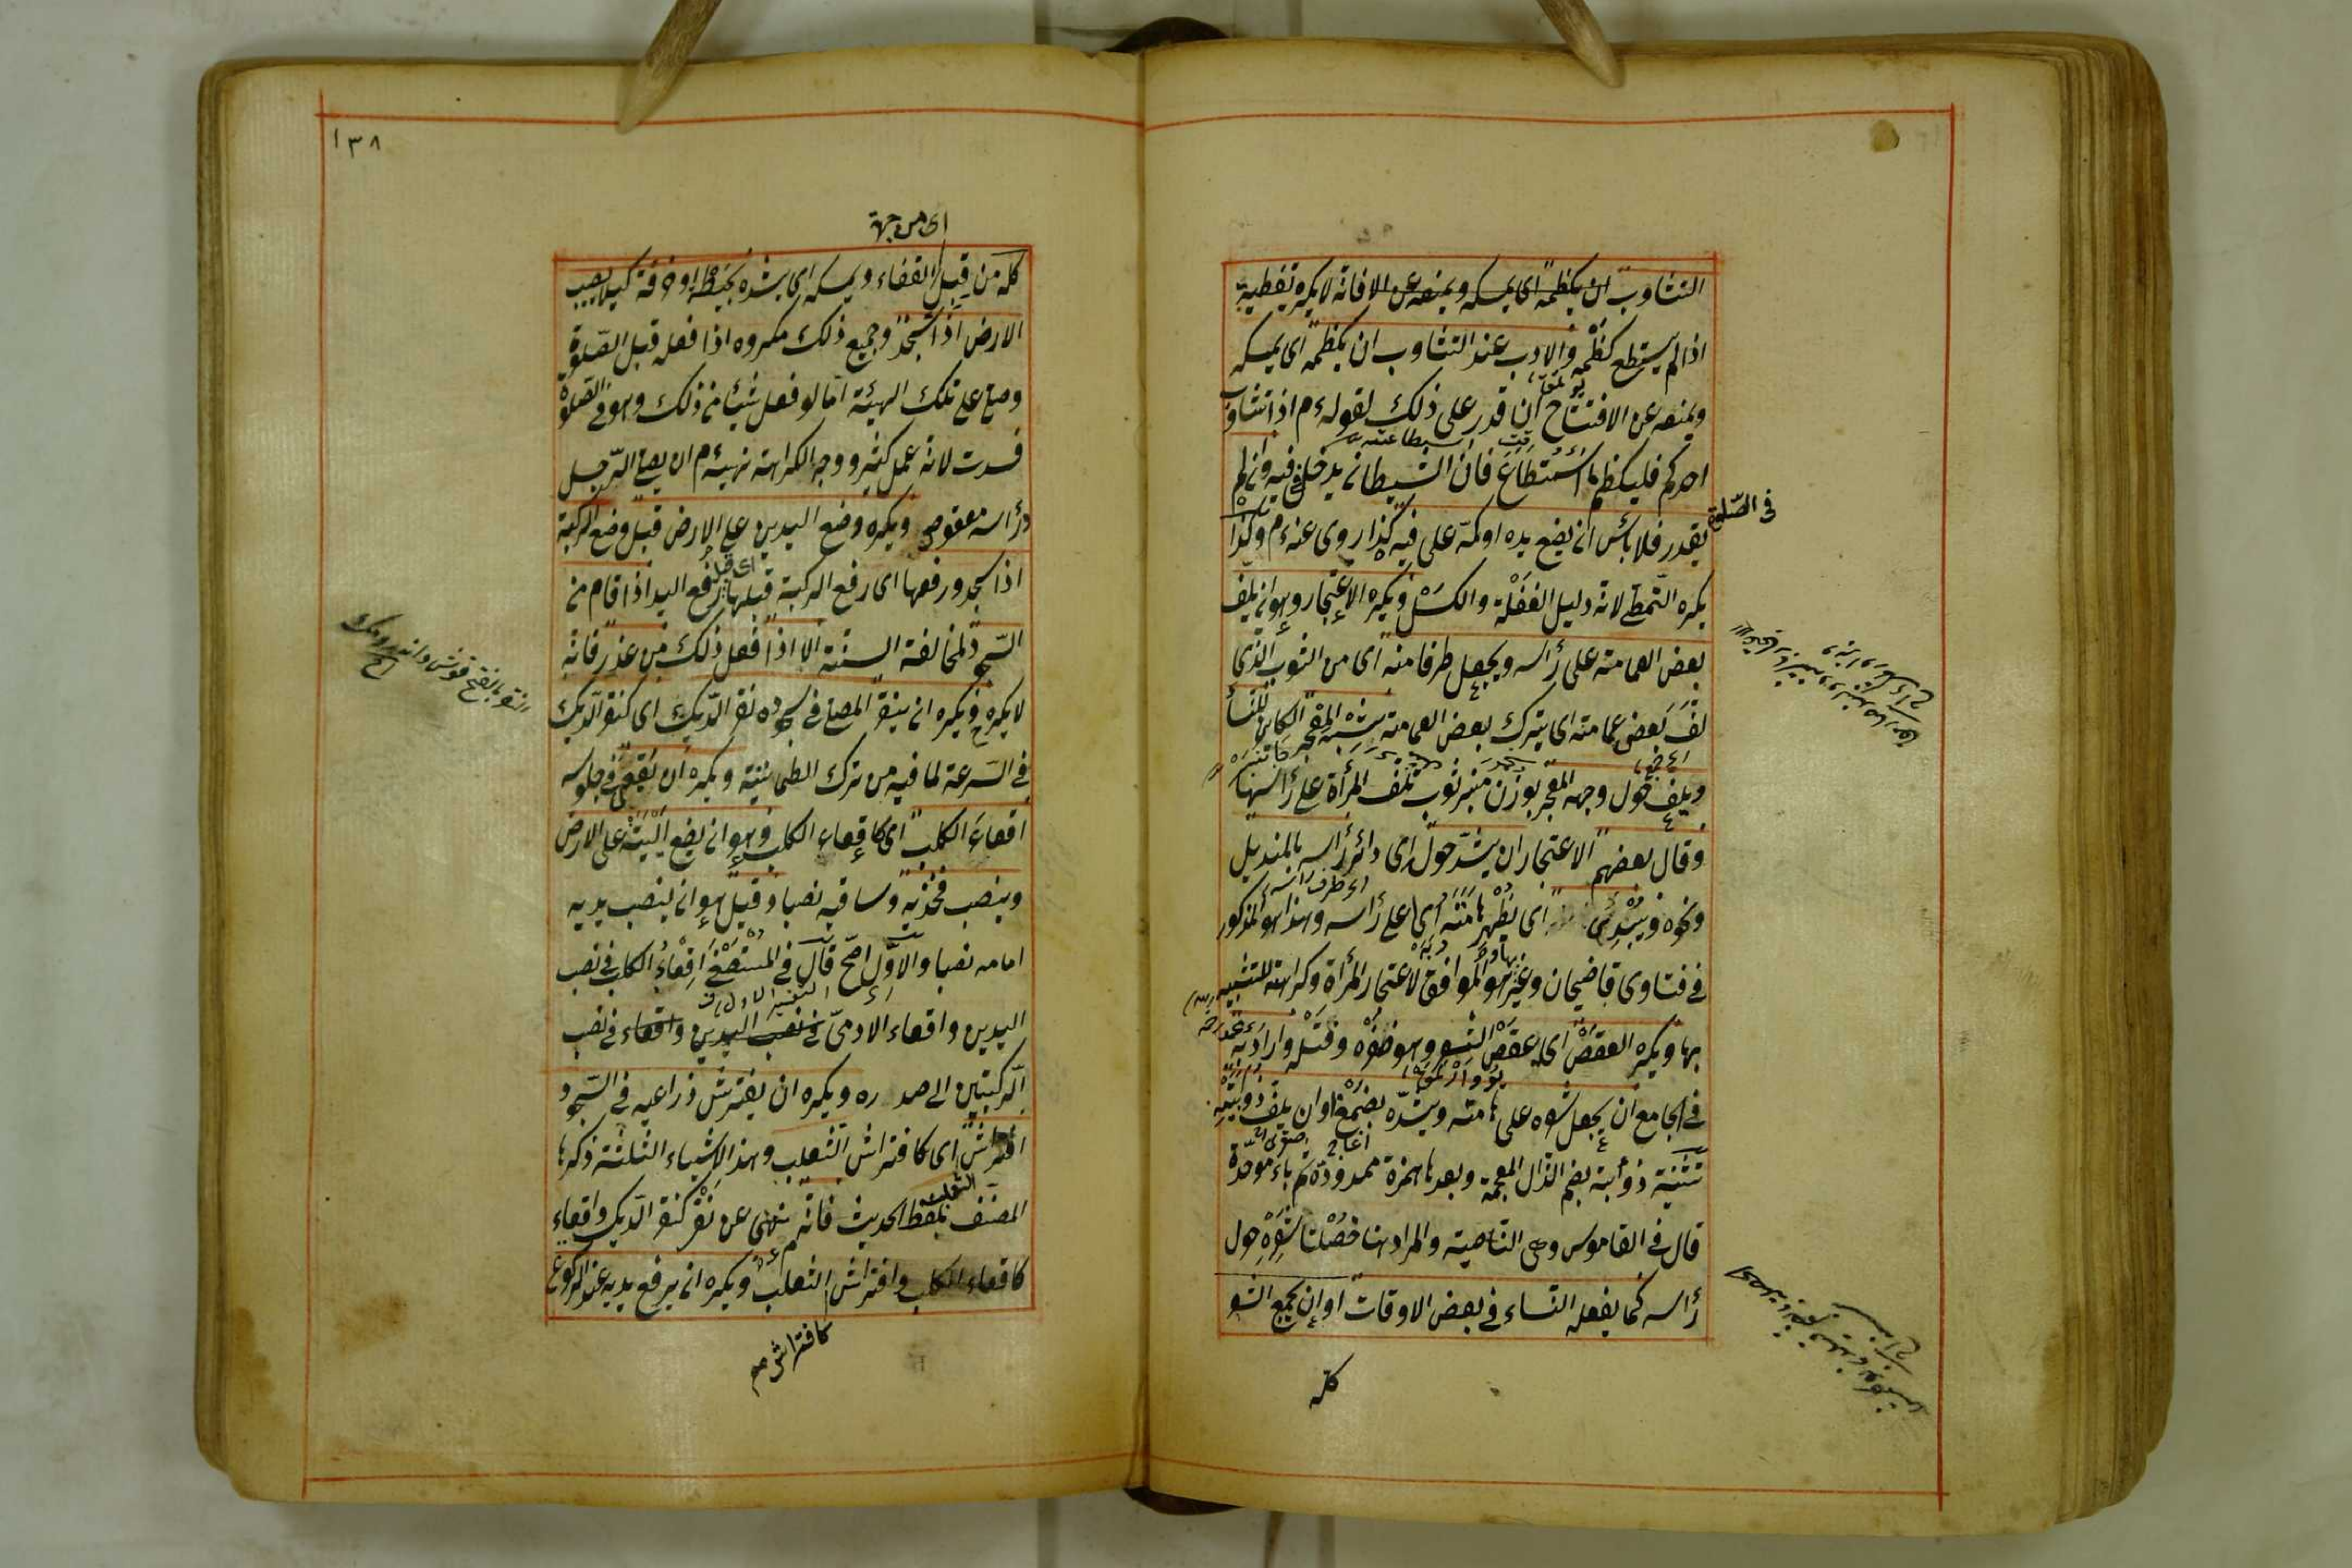 التثاوب ان يكظمه اى يمسكه ويمنعه عن الافاتة لا يكره تغطيته
اذا لم يستطع كظمه والادب عند التثاوب ان يكظمه اى يمسكه
ويمنعه عن الافتتاح ان قدر على ذلك لقوله ءم اذا تثاوب
احدكم فليكظم ما استطاع فان الشيطان يدخل فى فيه وان لم
فى الصلوة
يقدر فلا بأس ان يضع يده او كمه على فيه كذا روى عنه ءم وكذا
يكره التمطى لانه دليل الغفلة والكسل ويكره الاعتجار وهو ان يلف
بعض العمامة على رأسه ويجعل طرفا منه اى من الثوب الذى
لف بعض عمامته اى يترك بعض العمامة شبه المعجر الكائن للنسأ
ويلف حول وجهه المعجر بوزن منبر ثوب تلف المرأة على رأسها
وقال بعضهم الاعتجار ان يشد حول اى دائر رأسه بالمنديل
ونحوه ويبدى اى يظهر هامته اى اعلى رأسه وهذا هو المذكور
فى فتاوى قاضيخان وغيره هو الموافق لاعتجار المرأة وكراهته للتشبيه
بها ويكره العقص اى عقص الشعر وهو ضفره وفتله واراد به
فى الجامع ان يجعل شعره على هامته ويشده بصمغ او ان يلف ذوابتيه
تثنية ذوأبة بضم الذال المعجمة وبعدها همزة ممدودة ثم باء موحدة
قال فى القاموس وهى الناصية والمراد هنا خصلتا شعره حول
رأسه كما يفعله النساء فى بعض الاوقات او ان يجمع الشعر
كله
١٣٨
اى من جهة
كله من قبل القفاء ويمسكه اى يشده بخيط او خرقة كيلا يصيب
الارض اذا سجد وجميع ذلك مكروه اذا فعله قبل الصلوة
وصلى على تلك الهيئة اما لو فعل شيئا من ذلك وهو فى الصلوة
فسدت لانه عمل كثير ووجه الكراهة نهيه ءم ان يصلى الرجل
ورأسه معقوص ويكره وضع اليدين على الارض قبل وضع الركبة
اذا سجد ورفعها اى رفع الركبة قبلها اى قبل رفع اليد اذا قام من
السجود لمخالفة السنة الا اذا فعل ذلك من عذر فانه
لا يكره ويكره ان ينقر المصلى فى سجوده نقر الديك اى كنقر الديك
فى السرعة لما فيه من ترك الطمانينة ويكره ان يقعى فى جلوسه
اقعاء الكلب اى كاقعاء الكلب وهو ان يضع اليتيه على الارض
وينصب فخذيه وساقيه نصبا وقيل هو ان ينصب يديه
امامه نصبا والاول اصح قال فى المستصفى اقعاء الكلب فى نصب
اليدين واقعاء الادمى فى نصب اليدين واقعاء فى نصب
الركبتين الى صدره ويكره ان يفترش ذراعيه فى السجود
افتراش اى كافتراش الثعلب وهذا الاشياء الثلثة ذكرها
المصنف بلفظ الحديث فانه نهى عن نقر كنقر الديك واقعاء
كاقعاء الكلب وافتراش الثعلب ويكره ان يرفع يديه عند الركوع
كافتراش صح